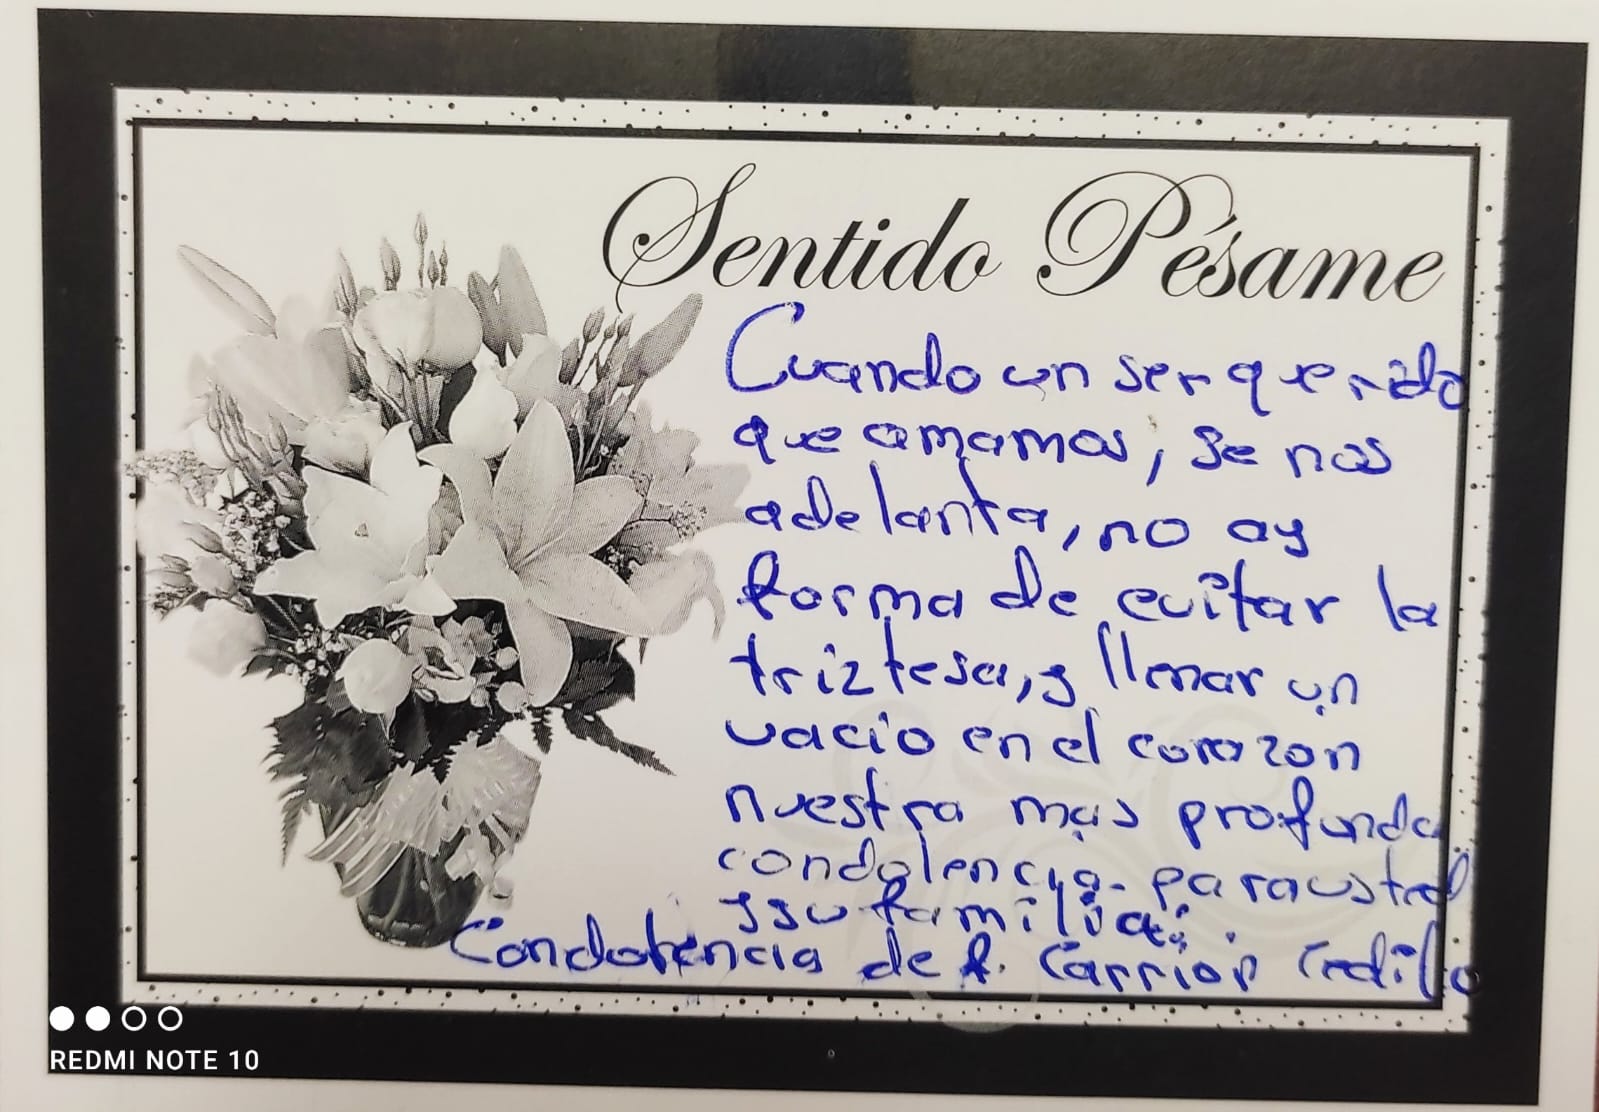 Sentido Pésame
Cuando un ser querido
que amamos, se nos
adelanta, no ay
forma de evitar la
triztesa, y llenar un
vacio en el corazon
nuestra mas profunda
condolencia para usted
y su familia.
Condolencia de f. Carrion Cedillo
REDMI NOTE 10